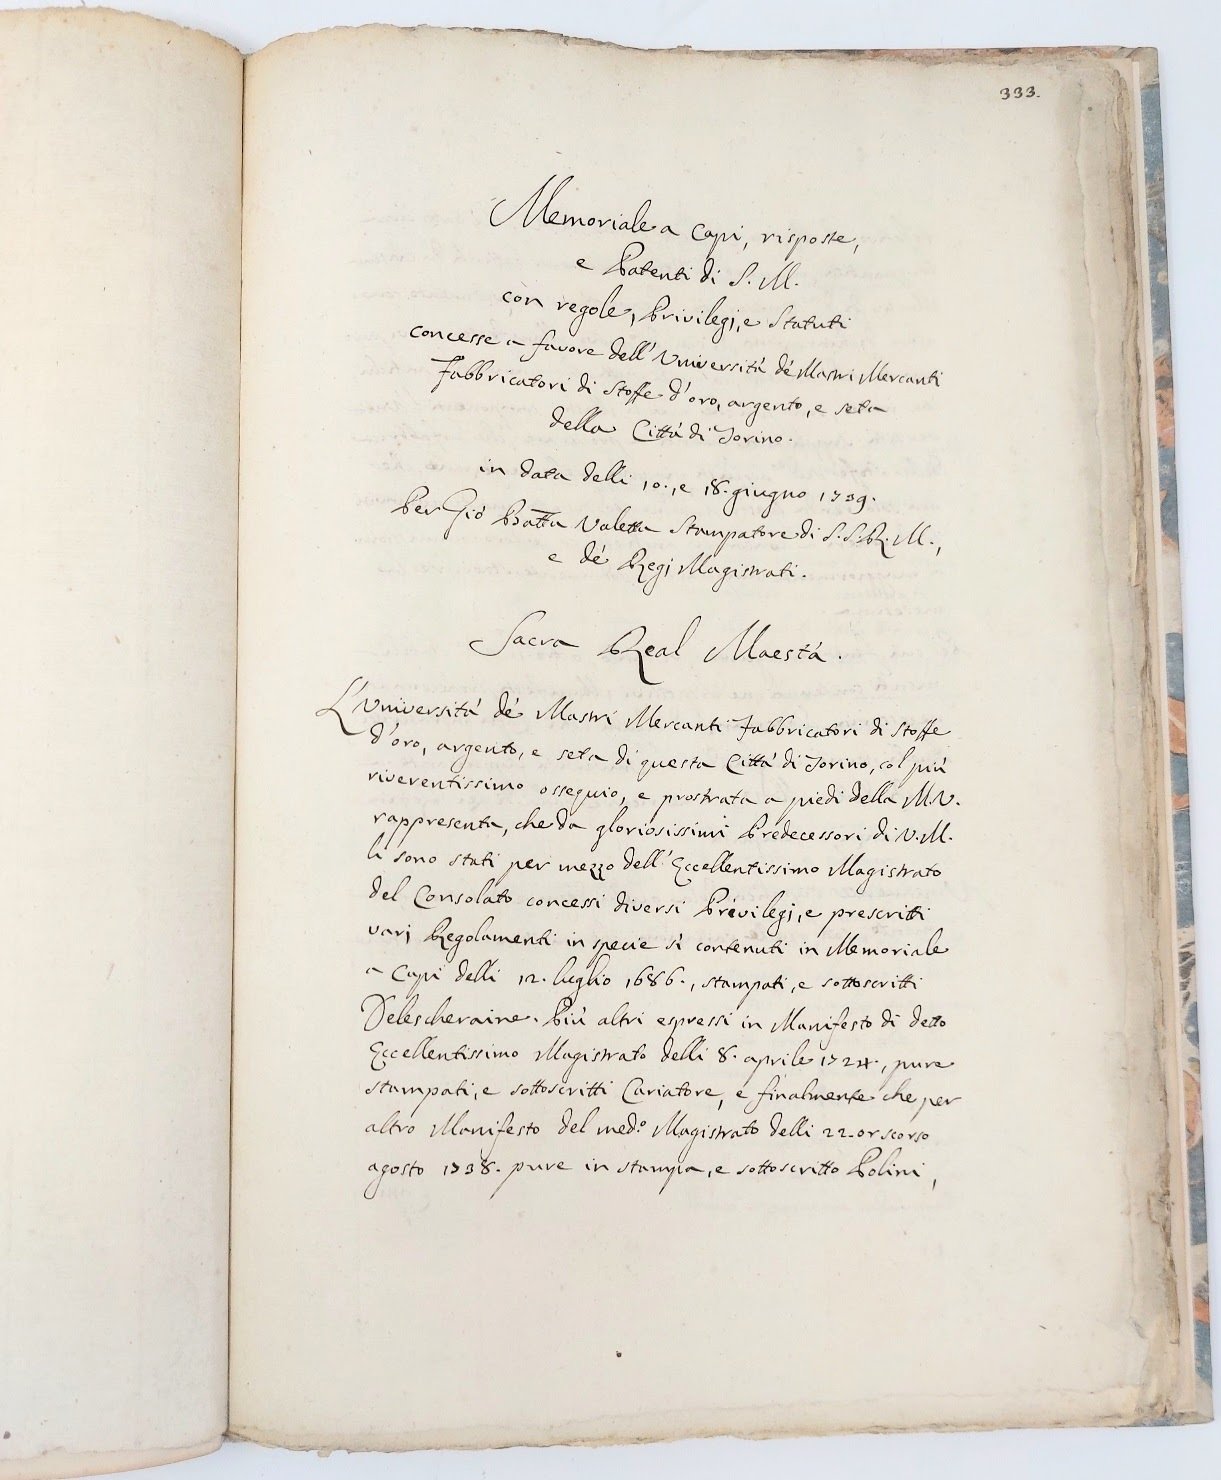 333.
Memoriale a Capi, risposte,
e Patenti di S. M.
con regole, Privilegj, e Statuti
concesse a favore dell' Università dé Mastri Mercanti
Fabbricatori di Stoffe d'oro, argento, e seta
della Città di Torino.
in data delli 10., e 18. giugno 1739.
Per Gió Batta Valetta Stampatore di S. S. R. M.,
e dé Regj Magistrati.
Sacra Real Maestá.
L'Università dé Mastri Mercanti Fabbricatori di Stoffe
d'oro, argento, e seta di questa Città di Torino, col piú
riverentissimo ossequio, e prostrata a piedi della M. V.
rappresenta, che da gloriosissimi Predecessori di V. M.
li sono stati per mezzo dell' Eccellentissimo Magistrato
del Consolato concessi diversi Privilegj, e prescritti
varj Regolamenti in specie sí contenuti in Memoriale
a Capi delli 12. luglio 1686., stampati, e sottoscritti
Delescheraine. Piú altri espressi in Manifesto di detto
Eccellentissimo Magistrato delli 8. aprile 1724., pure
stampati, e sottoscritti Cariatore, e finalmente che per
altro Manifesto del med.º Magistrato delli 22. or scorso
agosto 1738. pure in stampa, e sottoscritto Polini,